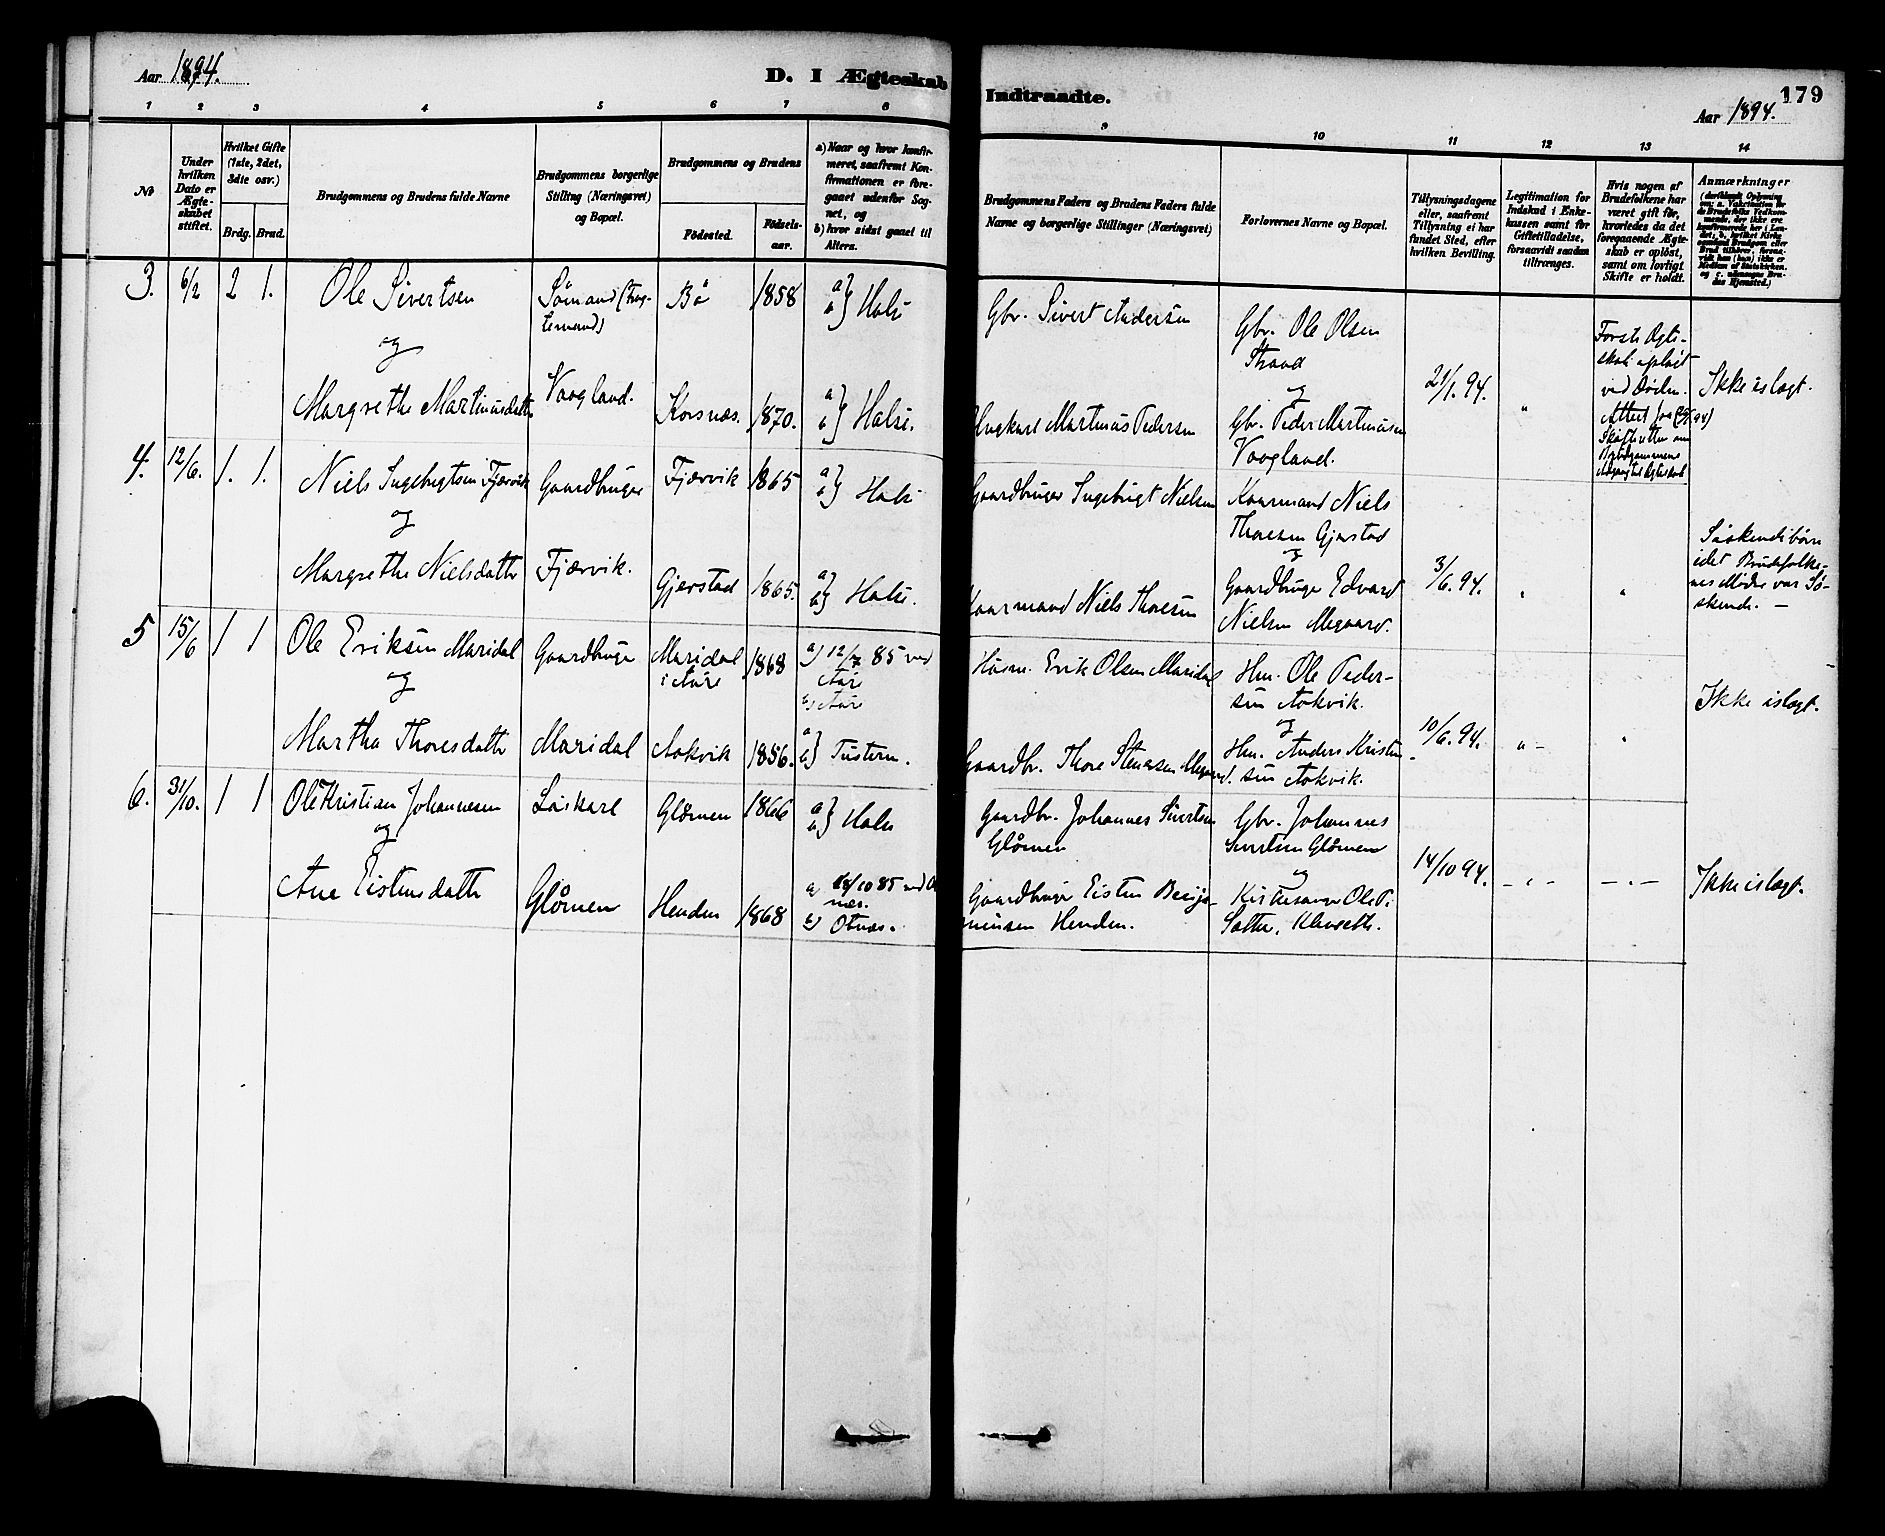 Aar 1894.
D. I Ægteskab
Indtraadte.
179
Aar 1894.
1 2 3 4 5 6 7 8
9 10 11 12 13 14
No
Under hvilken Dato er Ægteskabet stiftet.
Hvilket Gifte (1ste, 2det, 3die osv.)
Brdg. Brud.
Brudgommens og Brudens fulde Navne
Brudgommens borgerlige Stilling (Næringsvei) og Bopæl.
Brudgommens og Brudens
Fødested.
Fødselsaar.
a) Naar og hvor konfirmeret, saafremt Konfirmationen er foregaaet udenfor Sognet, og
b) hvor sidst gaaet til Alters.
Brudgommens Faders og Brudens Faders fulde Navne og borgerlige Stillinger (Næringsvei)
Forlovernes Navne og Bopæl.
Tillysningsdagene eller, saafremt Tillysning ei har fundet Sted, efter hvilken Bevilling.
Legitimation for Indskud i Enkekassen samt for Giftetilladelse, forsaavidt saadan tiltrænges.
Hvis nogen af Brudefolkene har været gift før, hvorledes da det foregaaende Ægteskab er opløst, samt om lovligt Skifte er holdt.
Anmærkninger
3. 6/2 2 1. Ole Sivertsen
Sømand
Bø 1858 a b} Halse
og
Margrethe Martinusdatter
Vaagland.
Korsnæs. 1870. a b} Halse.
Gbr. Sivert Andersen
Gbr. Ole Olsen
Strand
og
Martinus Pedersen
Gbr. Peder Martinusen
Vaagland.
21/1. 94.
"
Første Ægteskab opløst
ved Døden.
Ikke islægt.
4. 12/6. 1. 1. Niels Ingebrigtsen Fjærvik
Gaardbruger
Fjærvik 1865 a b} Halse
og
Margrethe Nielsdatter
Fjærvik.
Gjerstad 1865. a b} Halse.
Gaardbruger Ingebrigt Nielsen
Kaarmand Niels
Thoresen Gjerstad
og
Kaarmand Niels Thoresen
Gaardbruger Edvard
Nielsen Megaard.
3/6. 94.
Søskendebørn
idet Brudefolkenes Mødre var Søskende. –
5 15/6 1 1 Ole Eriksen Maridal
Gaardbruger
Maridal
i Aure
1868
a) 12/7 85 ved
Aure
b) Aure
og
Martha Thoresdatter
Maridal
Aakvik 1856. a b} Tustern.
Husm. Erik Olsen Maridal
Hm. Ole Pedersen Aakvik.
og
Gaardbr. Thore Stenersen Megaard.
Hm. Anders Kristensen Aakvik.
10/6. 94.
" -
"
Ikke islægt.
6. 31/10. 1 1 Ole Kristian Johannesen
Løskarl
Glåmen 1866 a b} Halse
og
Ane Eistensdatter
Glåmen
Henden 1868
b) Otnæs.
Gaardbr. Johannes Sivertsen
Glåmen
Gbr. Johannes
Sivertsen Glåmen
og
Gaardbruger Eisten
Henden.
Kirkesanger Ole P.
Sæther, Klevseth.
14/10 94.
Ikke islægt.